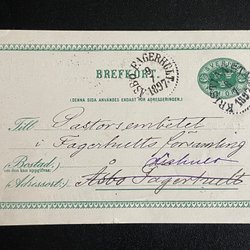 BREFKORT
FAGERHULT
1897
(DENNA SIDA ANVÄNDES ENDAST FÖR ADRESSERINGEN.)
Till Pastorsembetet
i Fagerhults Församling
Bostad:
(om den kan uppgifvas)
Adressort: Åsbo Fagerhult